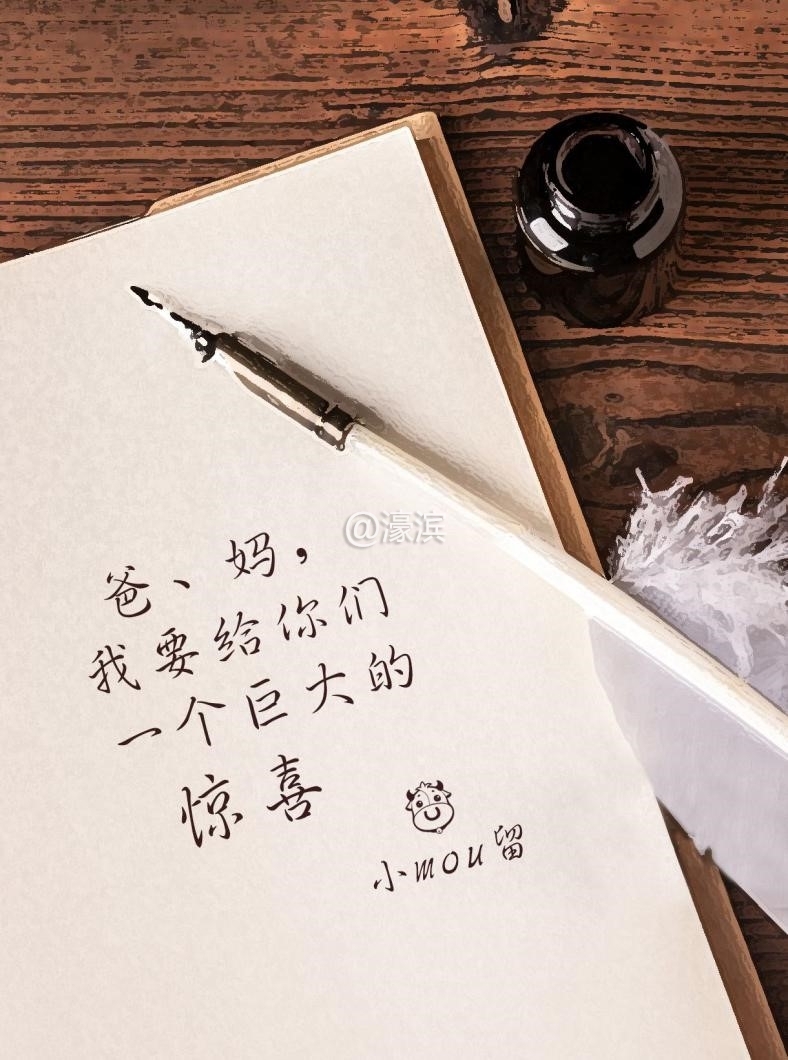 @濠滨
爸、妈，
我要给你们
一个巨大的
惊喜
小mou留